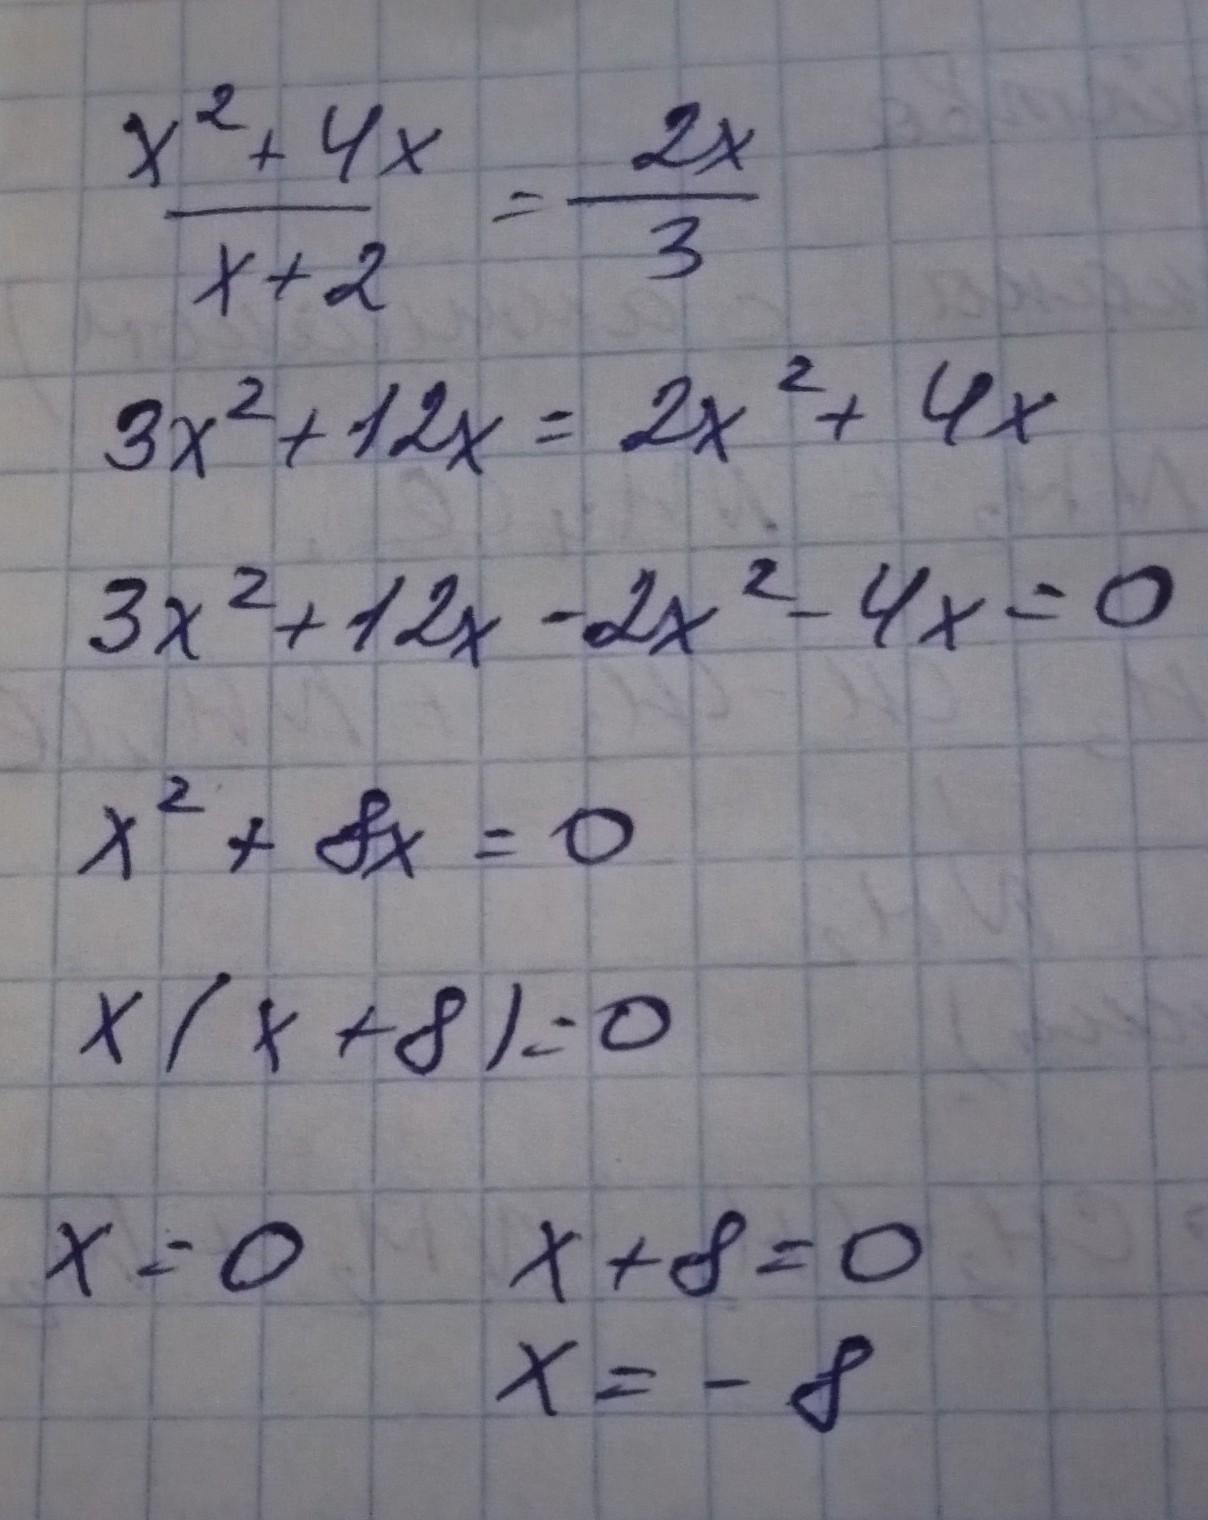 x² + 4x / x + 2 = 2x / 3
3x² + 12x = 2x² + 4x
3x² + 12x - 2x² - 4x = 0
x² + 8x = 0
x(x + 8) = 0
x = 0 x + 8 = 0
x = - 8